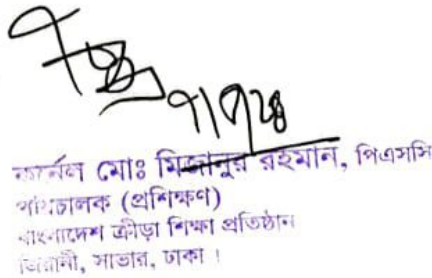 কর্নেল মোঃ মিজানুর রহমান, পিএসসি
পরিচালক (প্রশিক্ষণ)
বাংলাদেশ ক্রীড়া শিক্ষা প্রতিষ্ঠান
জিরানী, সাভার, ঢাকা।